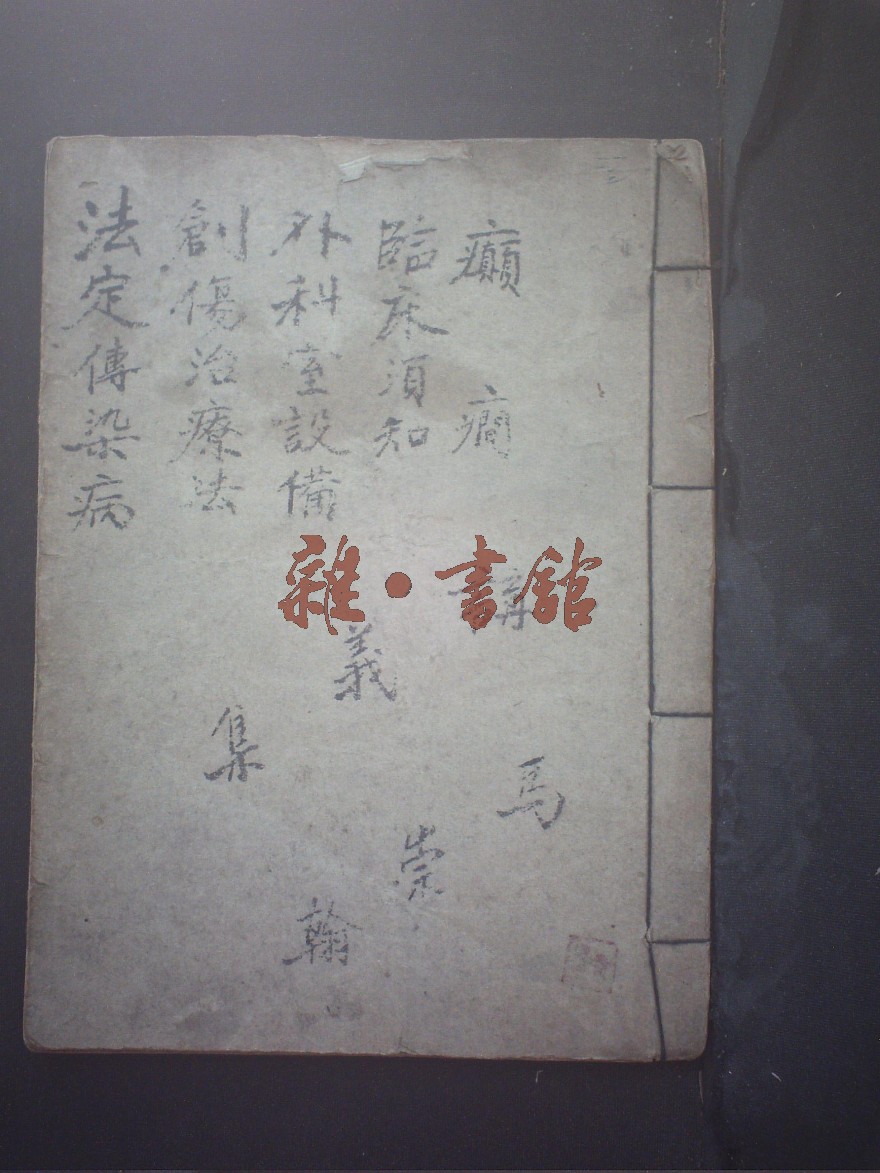 癲癇
臨床須知
外科室設備
創傷治療法
法定傳染病
講義集
馬崇翰
雜·書舘